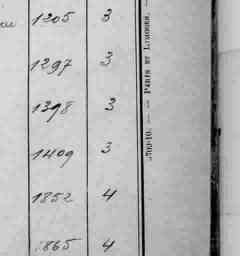 1205 3
1297 3
1398 3
1409 3
1852 4
1865 4
PARIS ET LIMOGES.